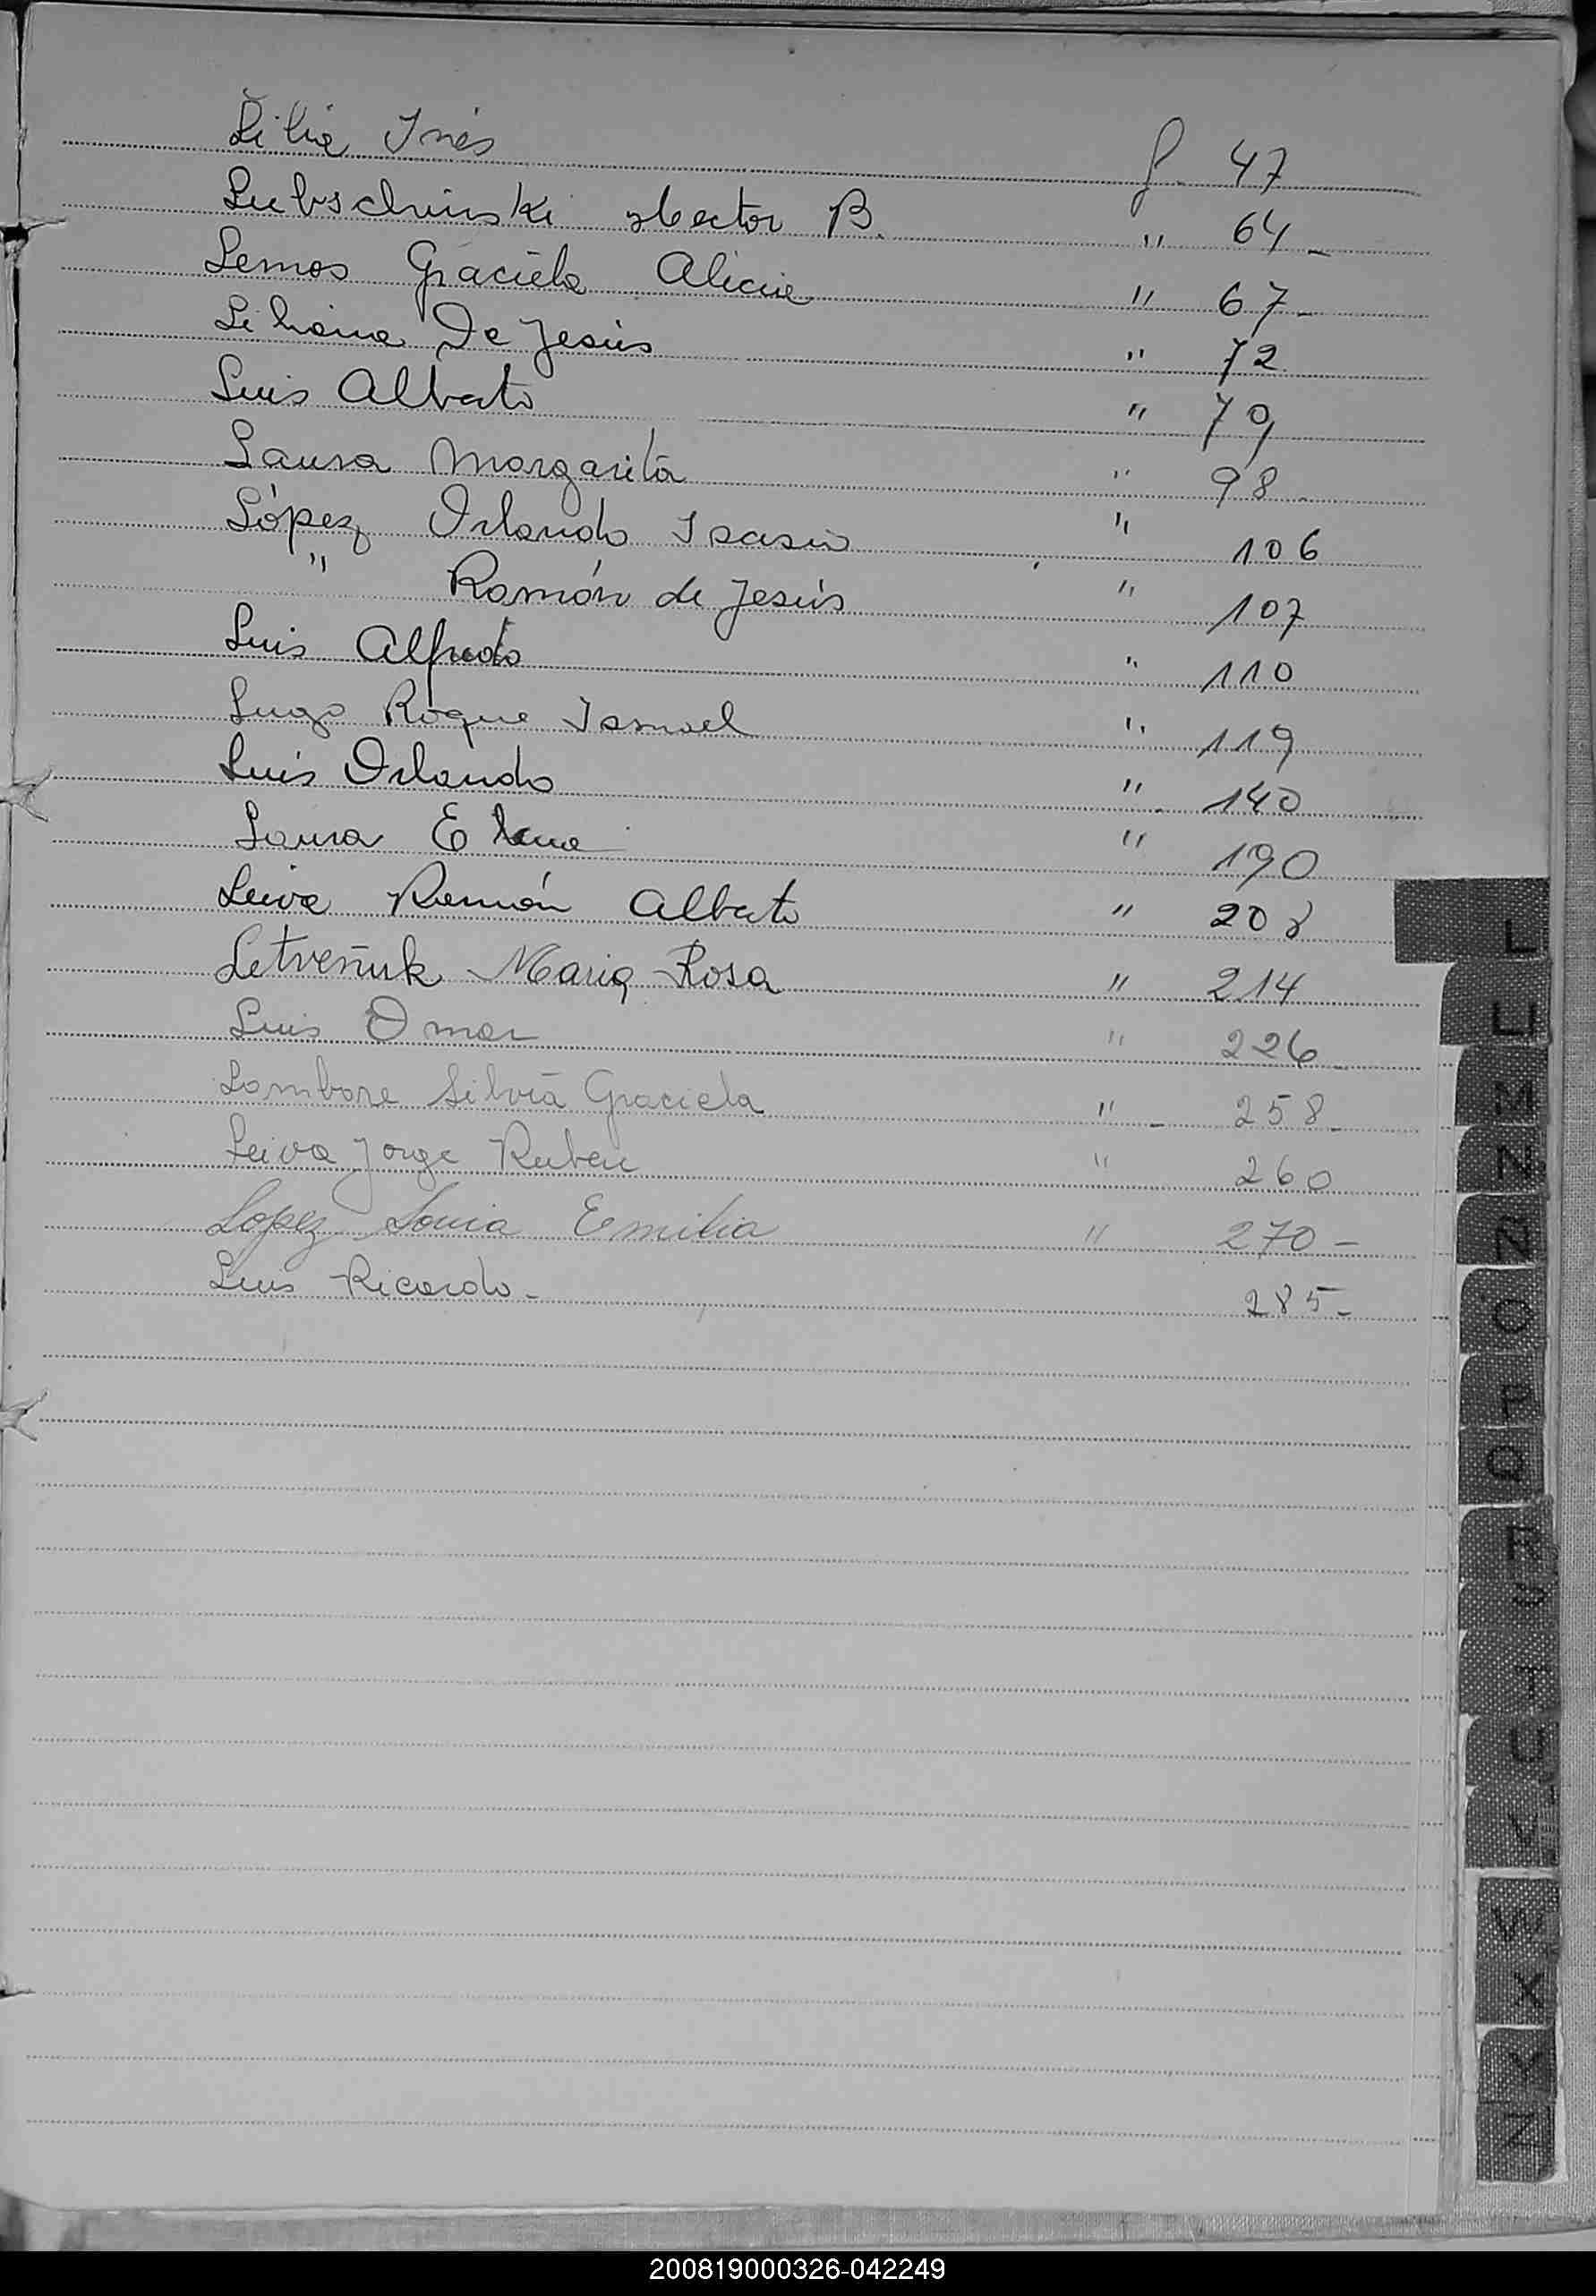 Lilia Inés f. 47
Lubschinski Hector B. " 64_
Lemos Graciela Alicia " 67_
Liliana De Jesús " 72
Luis Alberto " 79
Laura Margarita " 98_
López Orlando Isasio " 106
" Ramón de Jesús " 107
Luis Alfredo " 110
Lugo Roque Ismael " 119
Luis Orlando " 140
Laura Elena " 190
Leiva Ramón Alberto " 208
Letveñuk Maria Rosa " 214
Luis Omar " 226_
Lombare Silvia Graciela " _ 258_
Leiva Jorge Ruben " 260
Lopez Sonia Emilia " 270_
Luis Ricardo_ 285_
L
LL
M
N
Ñ
O
P
Q
R
S
T
U
V
W
X
Y
Z
200819000326-042249